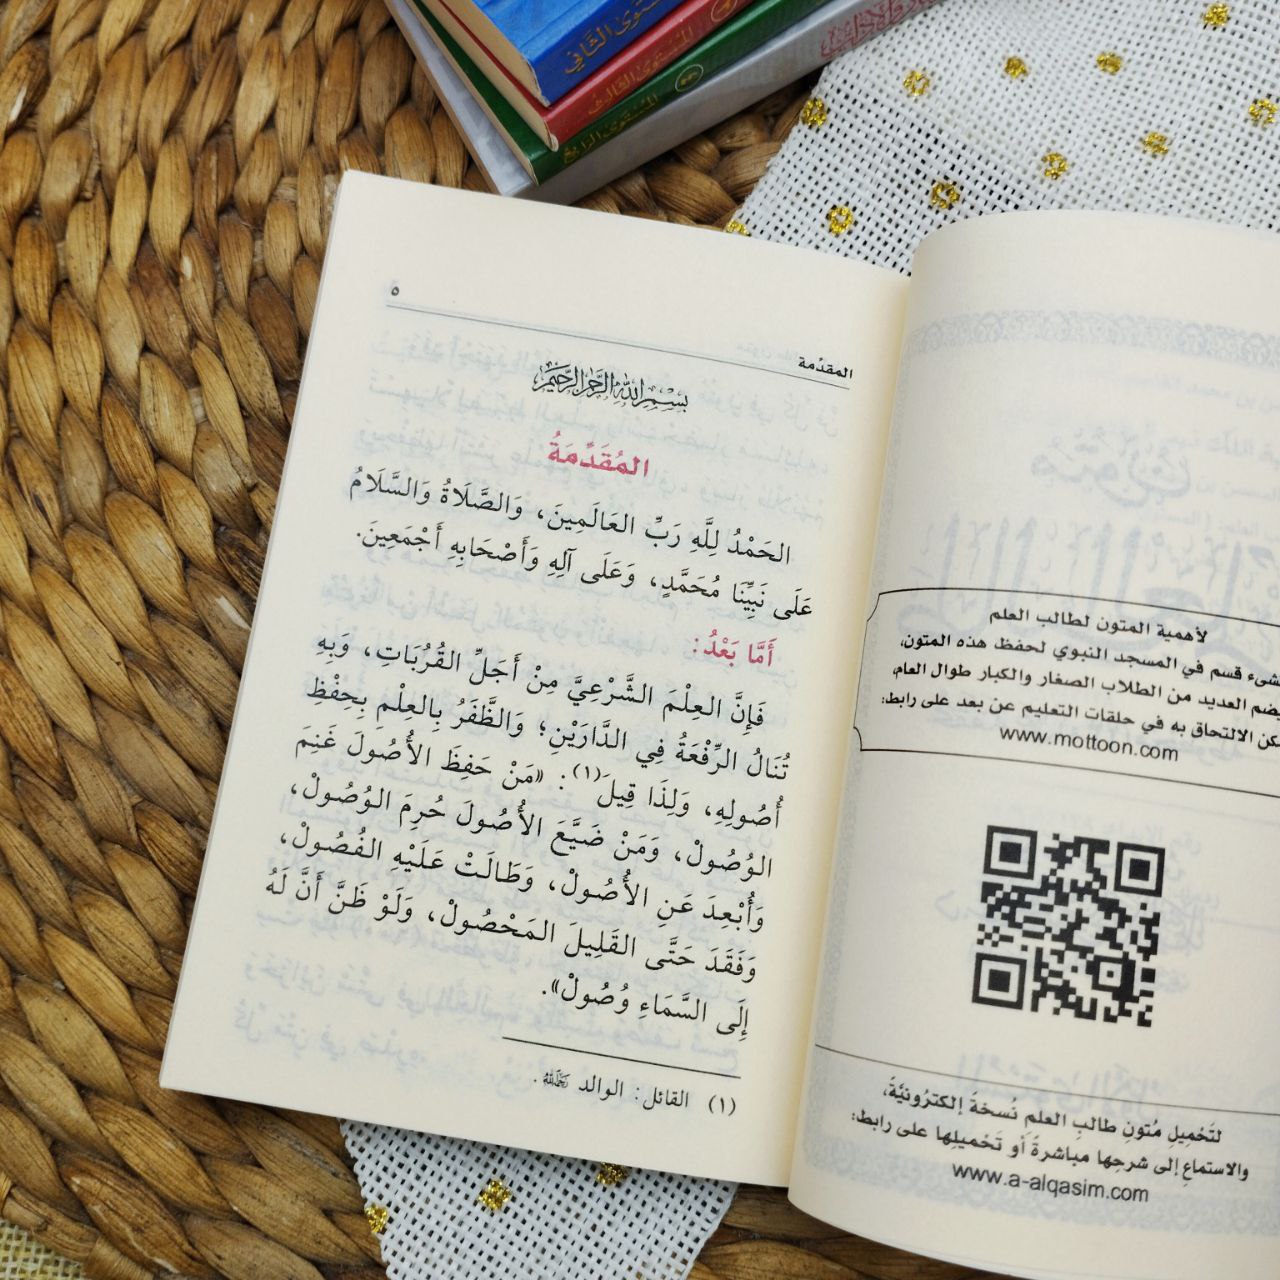 المستوى الثاني
المستوى الثالث
المستوى الرابع
لأهمية المتون لطالب العلم
قسم في المسجد النبوي لحفظ هذه المتون،
العديد من الطلاب الصغار والكبار طوال العام،
الالتحاق به في حلقات التعليم عن بعد على رابط:
www.mottoon.com
لتَحْمِيلِ مُتونِ طالبِ العلم نُسخةً إلكترُونيَّةً،
والاستماعِ إلى شرحِها مباشرةً أو تَحْميلِها على رابط:
www.a-alqasim.com
المقدِّمة
٥
بِسْمِ اللَّهِ الرَّحْمَنِ الرَّحِيمِ
المُقَدِّمَةُ
الحَمْدُ لِلَّهِ رَبِّ العَالَمِينَ، وَالصَّلَاةُ وَالسَّلَامُ
عَلَى نَبِيِّنَا مُحَمَّدٍ، وَعَلَى آلِهِ وَأَصْحَابِهِ أَجْمَعِينَ.
أَمَّا بَعْدُ:
فَإِنَّ العِلْمَ الشَّرْعِيَّ مِنْ أَجَلِّ القُرُبَاتِ، وَبِهِ
تُنَالُ الرِّفْعَةُ فِي الدَّارَيْنِ؛ وَالظَّفَرُ بِالعِلْمِ بِحِفْظِ
أُصُولِهِ، وَلِذَا قِيلَ(١): «مَنْ حَفِظَ الأُصُولَ غَنِمَ
الوُصُولْ، وَمَنْ ضَيَّعَ الأُصُولَ حُرِمَ الوُصُولْ،
وَأُبْعِدَ عَنِ الأُصُولْ، وَطَالَتْ عَلَيْهِ الفُصُولْ،
وَفَقَدَ حَتَّى القَلِيلَ المَحْصُولْ، وَلَوْ ظَنَّ أَنَّ لَهُ
إِلَى السَّمَاءِ وُصُولْ».
(١) القائل: الوالد رحمه الله.